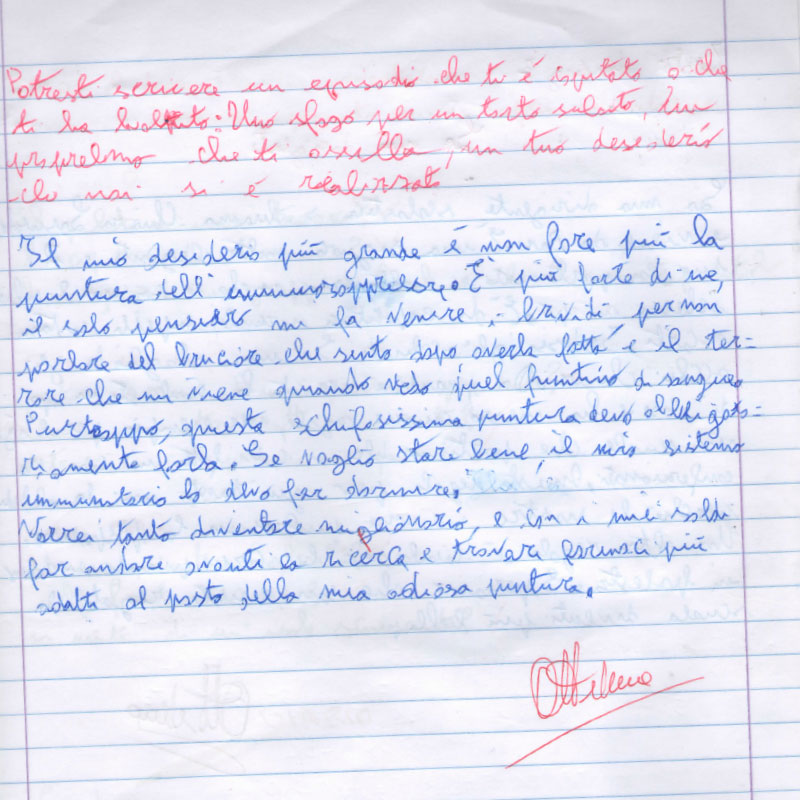 Potresti scrivere un episodio che ti è capitato o che
ti ha : Uno sfogo per un torto subito, un
che ti assilla, un tuo desiderio
che mai si è realizzato
Il mio desiderio più grande è non fare più la
puntura dell'immunosoppressore. È più forte di me,
il solo pensiero mi fa venire i brividi per non
parlare del bruciore che sento dopo averla fatto e il ter=
rore che mi viene quando vedo quel puntino di sangue.
Purtroppo, questa schifosissima puntura devo obbligato=
riamente farla. Se voglio stare bene, il mio sistema
immunitario lo devo far dormire.
Vorrei tanto diventare miglionario, e con i miei soldi
far andare avanti la ricerca e trovare farmaci più
adatti al posto della mia odiosa puntura.
Ottimo